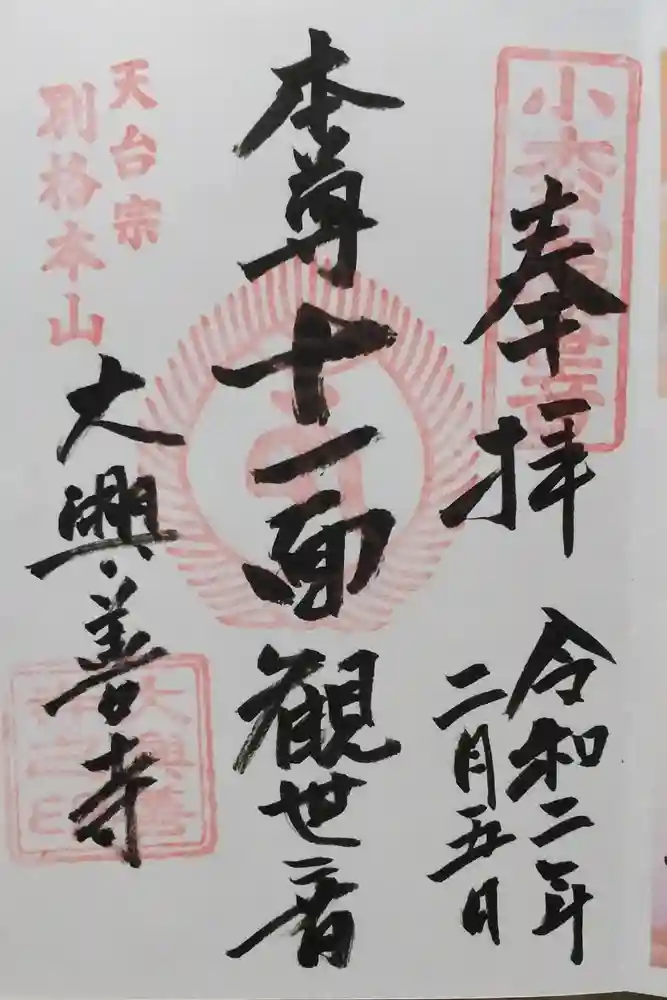 奉拝
令和二年
二月五日
本尊十一面観世音
天台宗
別格本山
大興善寺
大興善
寺之印